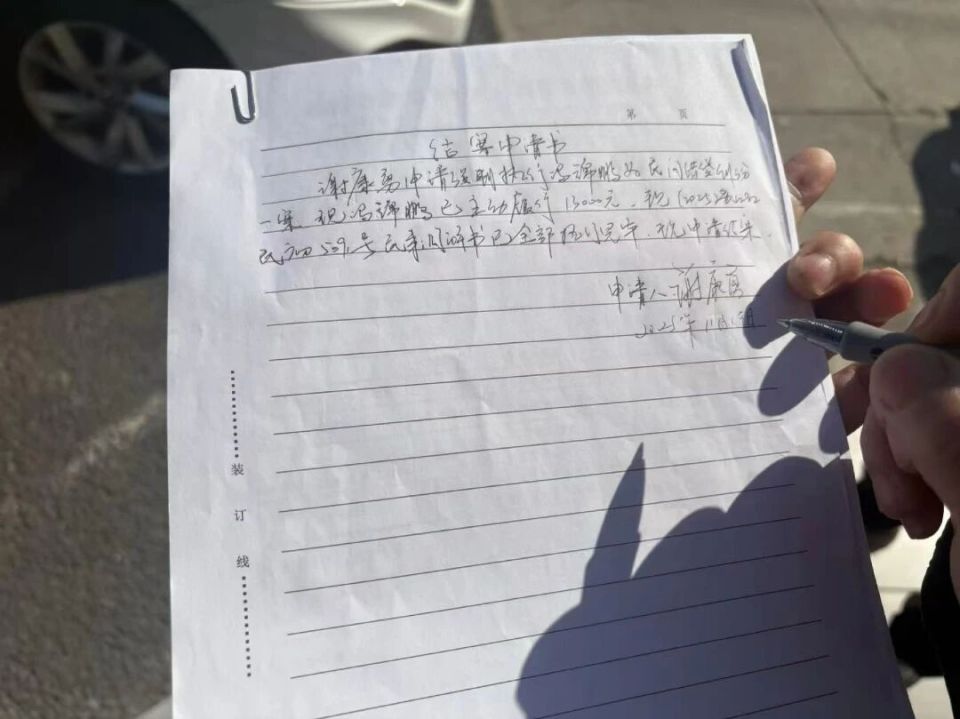 第 页
结案申请书
谢康 申请强制执行冯 鹏 民间借贷纠纷
一案，现冯 鹏已主动履行13000元，现(2025)
民初 号民事调解书已全部执行完毕，现申请结案.
申请人 谢康
2025年11月
装
订
线